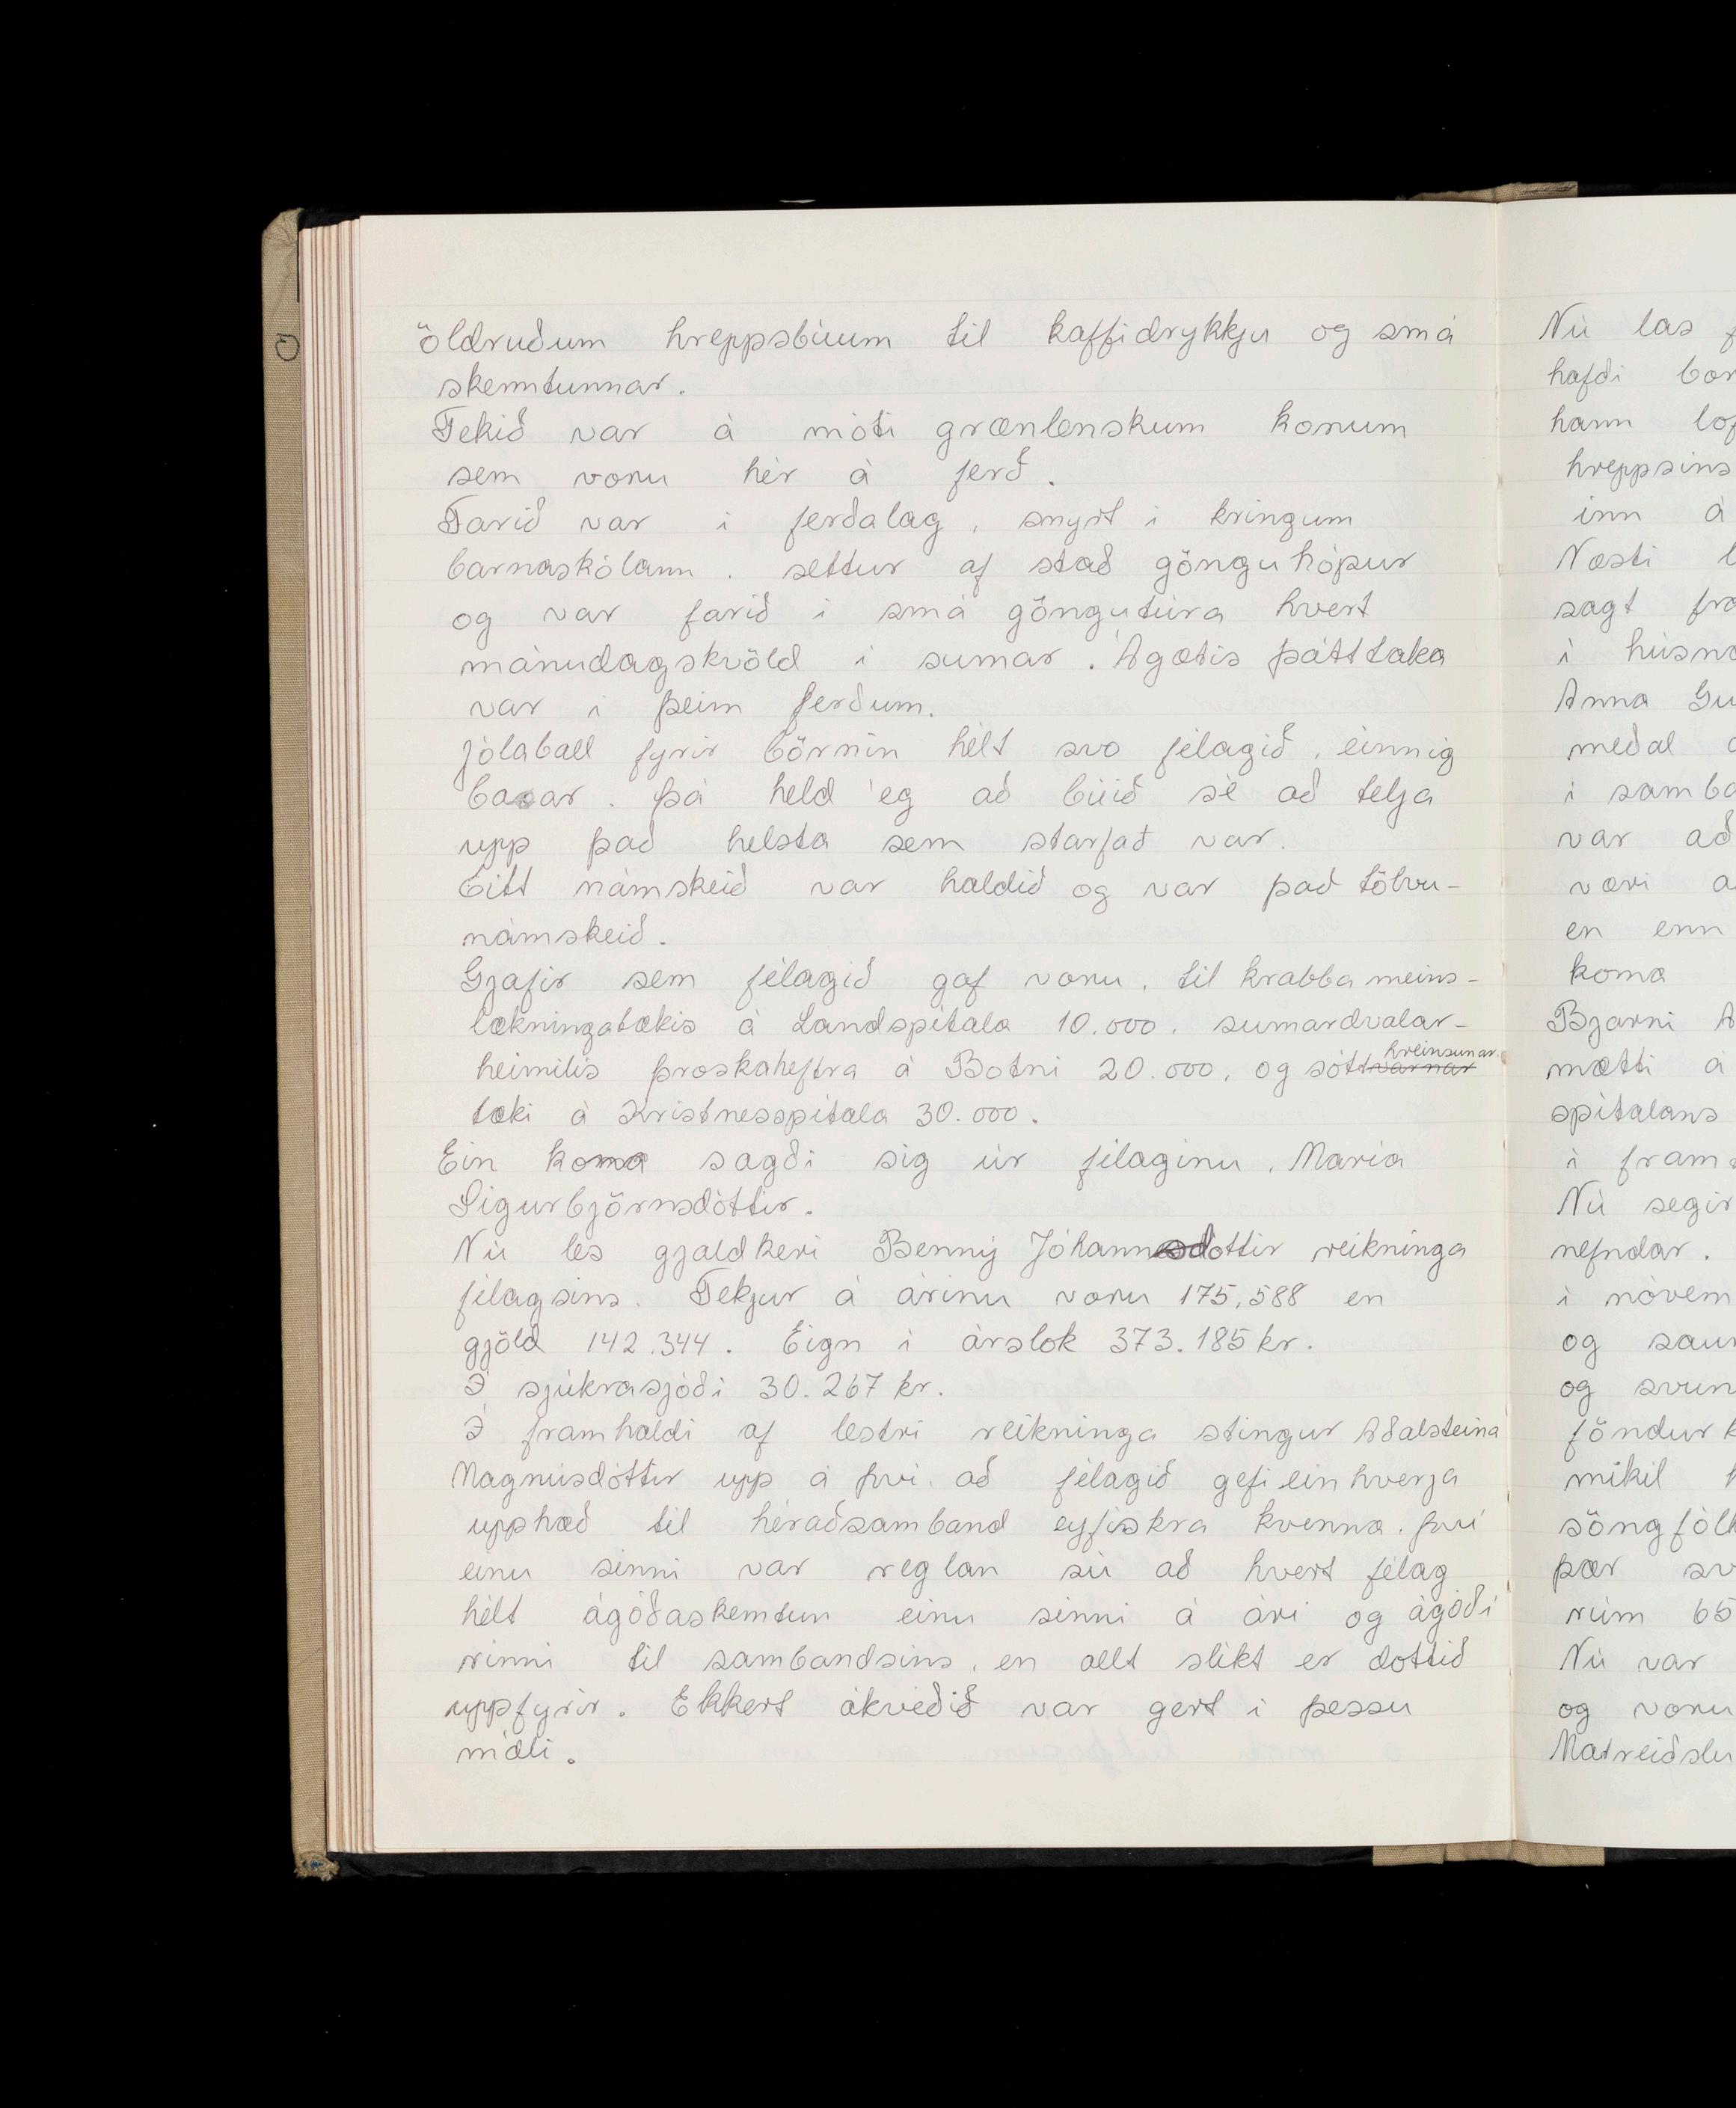 öldruðum hreppsbúum til kaffidrykkju og smá
skemmtunnar.
Tekið var á móti grænlenskum konum
sem voru hér á ferð.
Farið var í ferðalag, snyrt í kringum
barnaskólann, settur af stað gönguhópur
og var farið í smá göngutúra hvert
mánudagskvöld í sumar. Ágætis þátttaka
var í þeim ferðum.
Jólaball fyrir börnin hélt svo félagið, einnig
basar. Þá held ég að búið sé að telja
upp það helsta sem starfað var.
Eitt námskeið var haldið og var það tölvu-
námskeið.
Gjafir sem félagið gaf voru, til krabbameins-
lækningatækis á Landspítala 10.000, sumardvalar-
heimilis þroskaheftra á Botni 20.000, og sótthreinsunar
tæki á Kristnesspítala 30.000.
Ein kona sagði sig úr félaginu, María
Sigurbjörnsdóttir.
Nú les gjaldkeri Benný Jóhannsdottir reikninga
félagsins. Tekjur á árinu voru 175.588 en
gjöld 142.344. Eign í árslok 373.185 kr.
Í sjúkrasjóði 30.267 kr.
Í framhaldi af lestri reikninga stingur Aðalsteina
Magnúsdóttir upp á því, að félagið gefi einhverja
upphæð til héraðsamband eyfiskra kvenna, því
einu sinni var reglan sú að hvert félag
hélt ágóðaskemtun einu sinni á ári og ágóði
rinni til sambandsins, en allt slíkt er dottið
uppfyrir. Ekkert ákveðið var gert í þessu
máli.
Nú las
hafði
hann
hreppsins
inn á
Næsti
sagt
í
Anna
meðal
í
var að
væri
en enn
koma
Bjarni
mætti á
spítalans
í
Nú segir
nefndar.
í
og
og
mikil
þær
rúm 65
Nú var
og voru